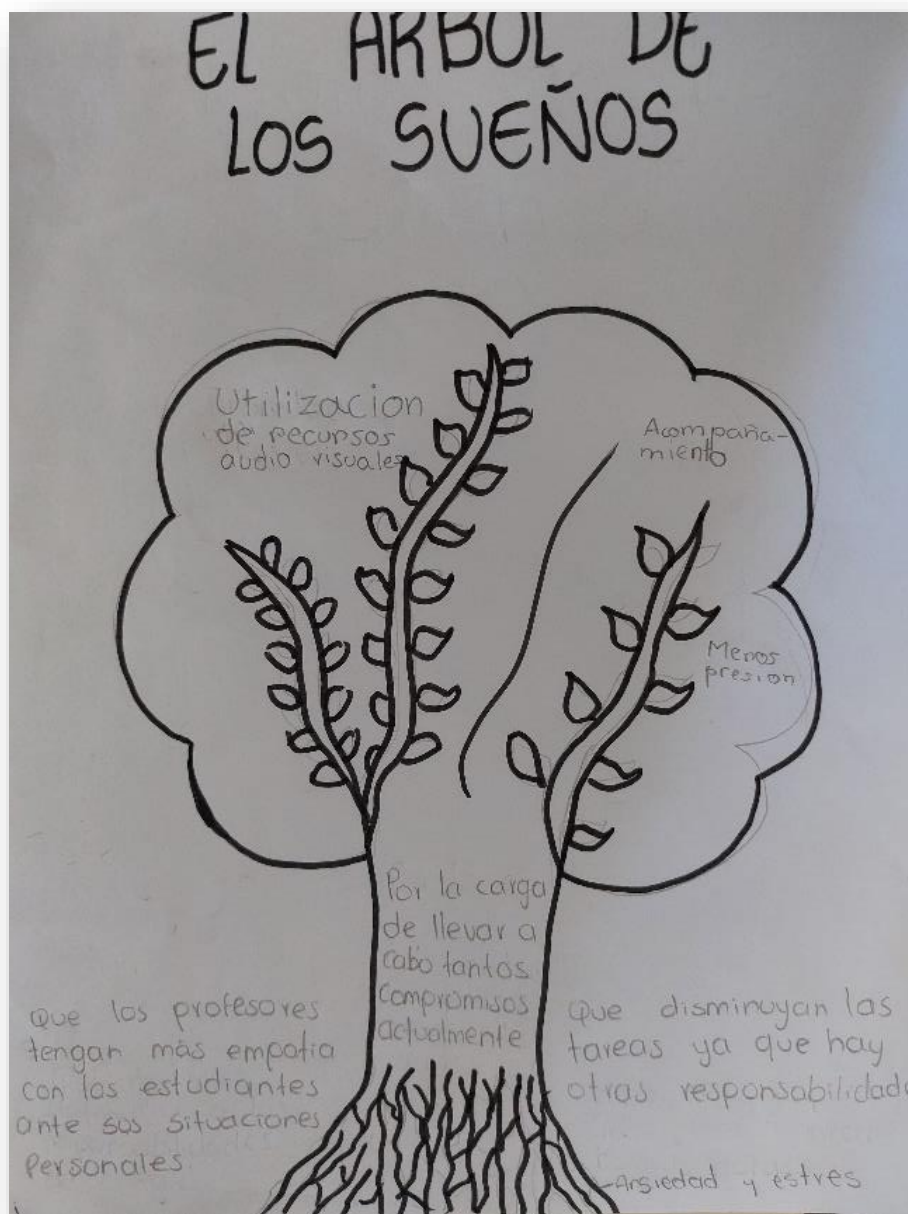 EL ARBOL DE
LOS SUEÑOS
Utilizacion
de recursos
audio visuales
Acompaña-
miento
Menos
presion
Por la carga
de llevar a
cabo tantos
compromisos
actualmente
Que los profesores
tengan más empatia
con los estudiantes
ante sus situaciones
Personales
Que disminuyan las
tareas ya que hay
otras responsabilidad
-Ansiedad y estres